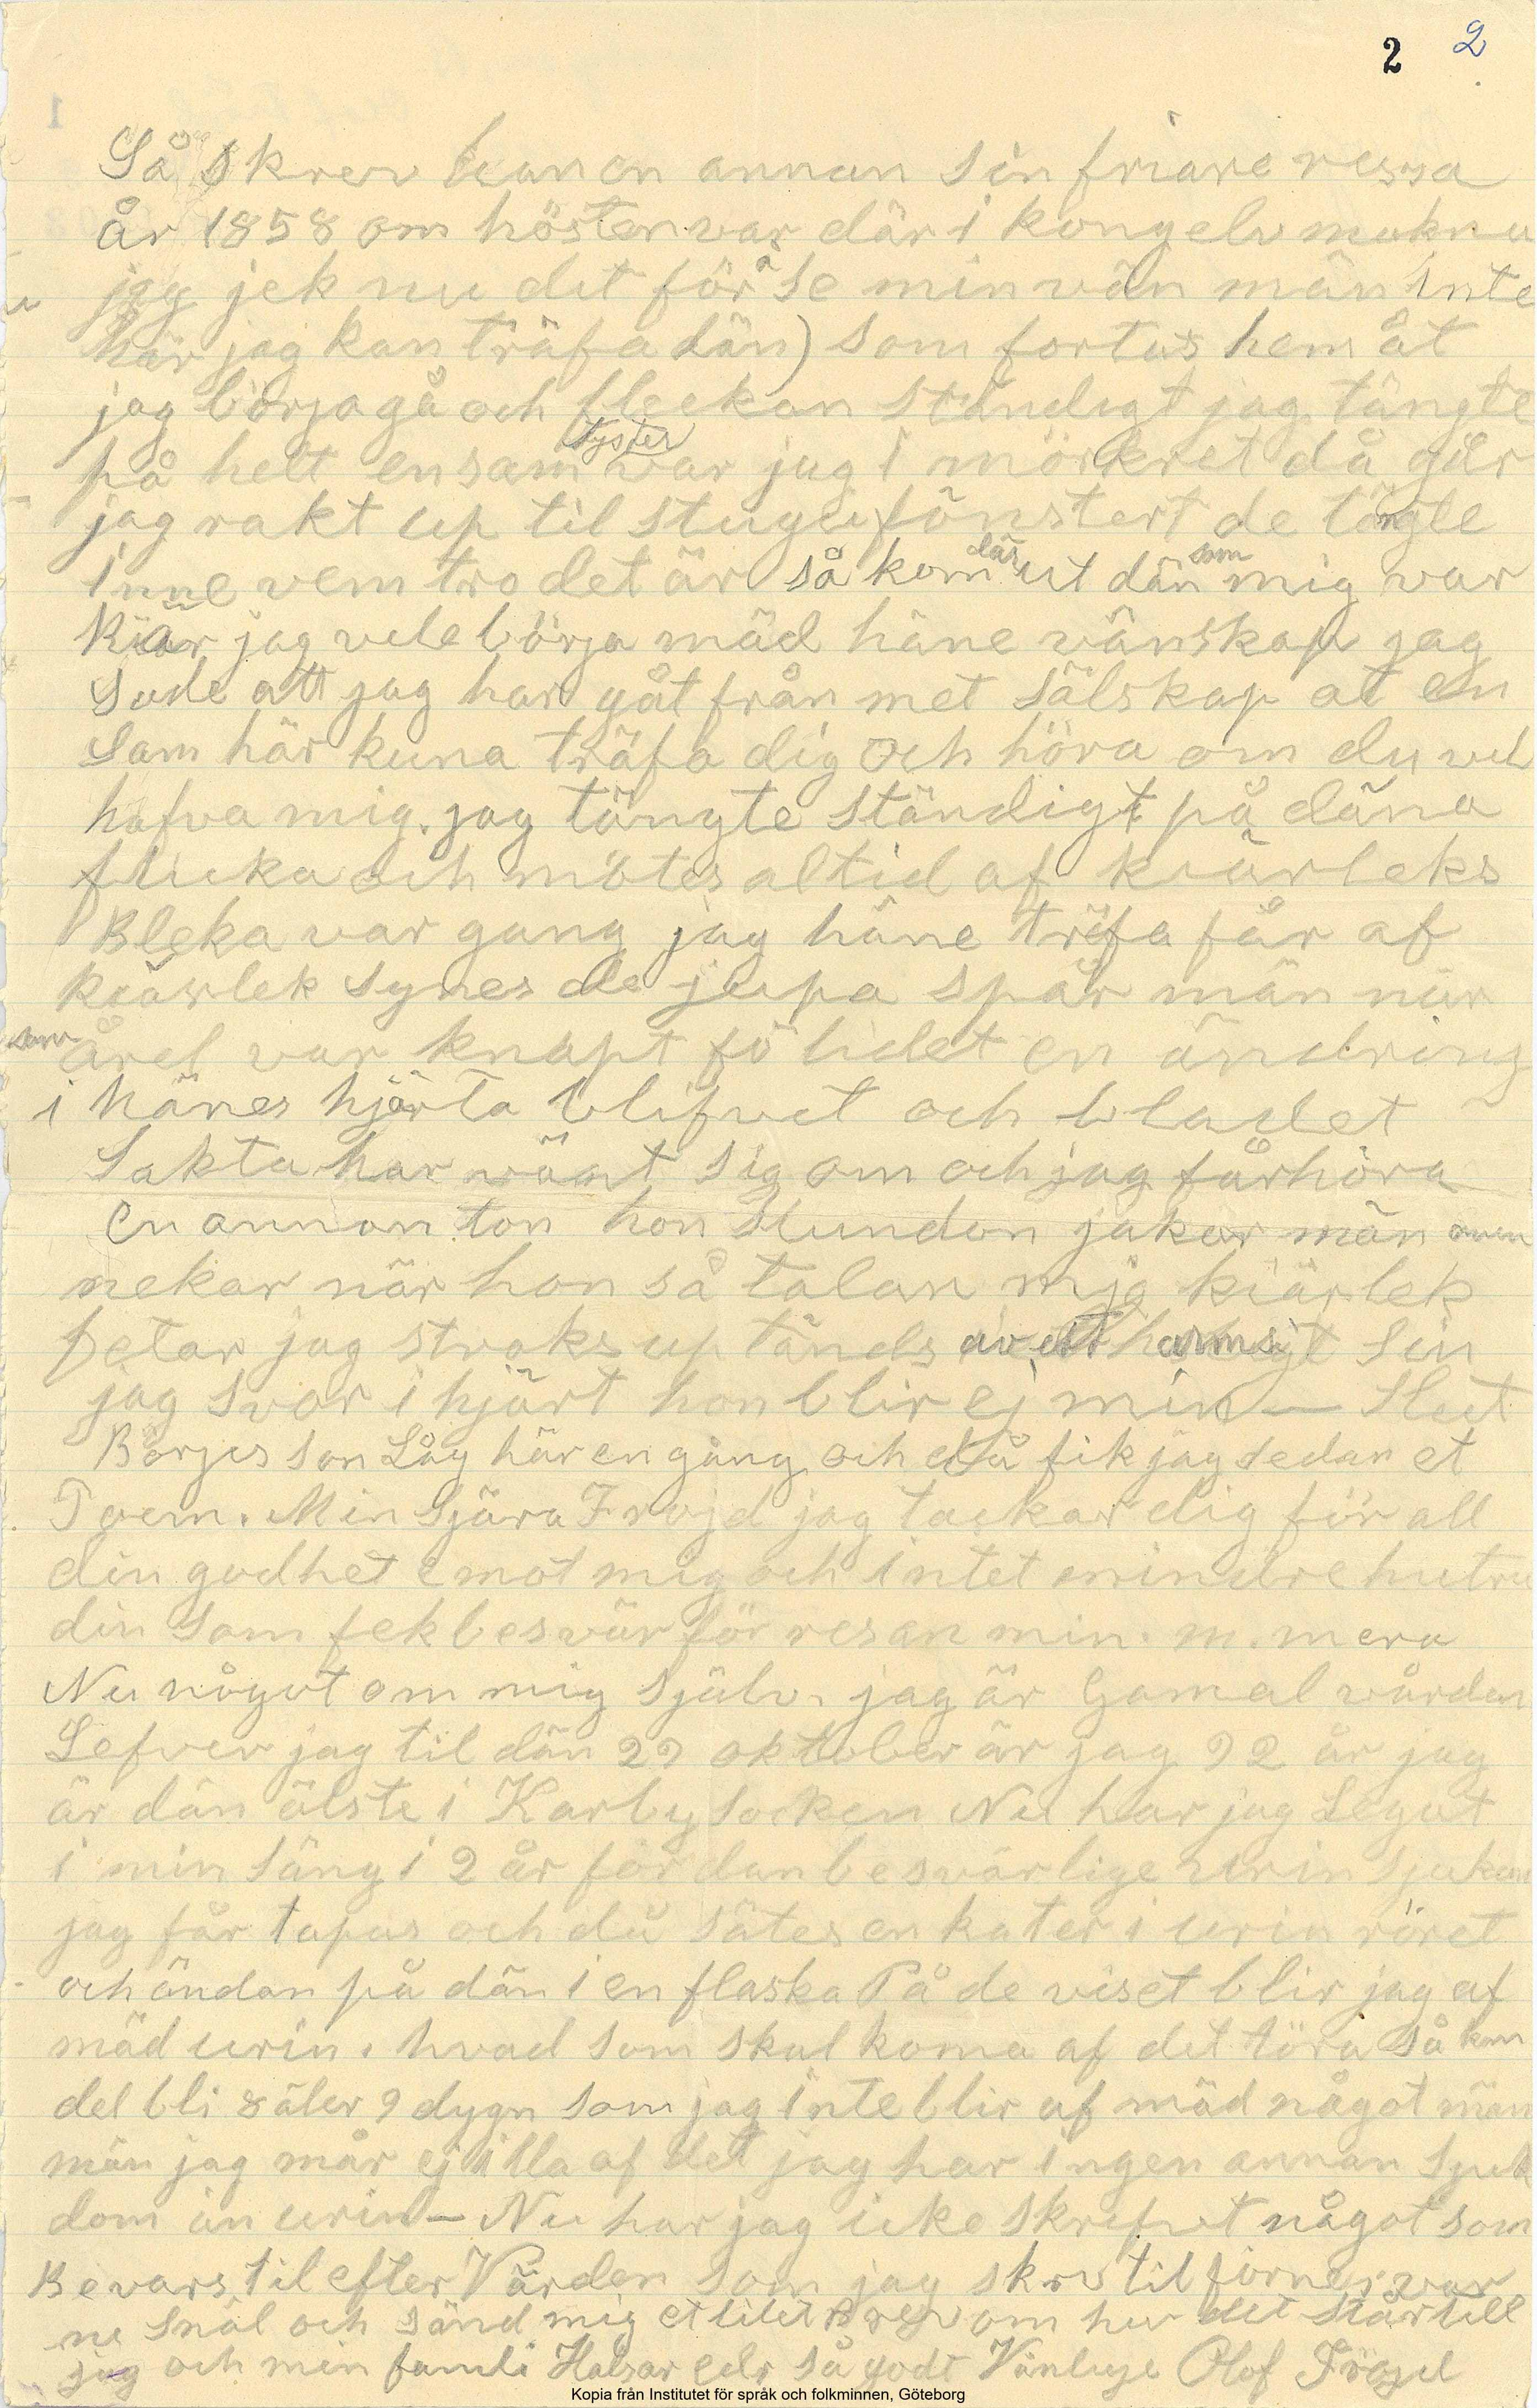 2 2
Så skrev han en annan sin friare ressa
år 1858 om hösten var där i kongelv makna
jag jek nu det för å se min vän män inte
här jag kan träfa dän) som fortas hem åt
jag börja gå och flickan ständigt jag tängte
på helt ensam tyster var jag i mörkret då går
jag rakt up til stugufönstert de tängte
inne vem tro det är så kom där ut dän som mig var
kiär jag vele börja mäd häne vänskap jag
sade att jag har gåt från met sälskap at en
sam här kuna träfa dig och höra om du vel
hafva mig. jag tängte ständigt på däna
flicka och mötes altid af kiärleks
Bleka var gang jag häne träfa får af
kiärlek synes de jupa spår män når
som året var knapt fölidet en ändring
i hänes hjärta blifvet och bladet
Sakta har vänt sig om och jag får höra
en annan ton hon stundon jakar män även
nekar när hon så talan mja kiärlek
petar jag straks up tänds av ett sin
jag svor i hjärt hon blir ej min — Slut
Börjes son Låg här en gång och då fik jag sedan et
Poem. Min Sjära Frojd jag tackar dig för all
din godhet emot mig och intet mindre hutru
din som fek besvär för resan min. m. mera
Nu något om mig själv. jag är Gamal vården
Lefver jag til dän 29 oktober är jag 92 år jag
är dän älste i Karby socken Nu har jag Legat
i min säng i 2 år för dan besvärlige urin sjukan
jag får tapas och då sätes en kater i urin röret
och ändan på dän i en flaska På de viset blir jag af
mäd urin. hvad som skal koma af det töra så kan
det bli 8 äler 9 dygn som jag inte blir af mäd något män
män jag mår ej illa af det jag har ingen annan sjuk
dom än urin — Nu har jag icke skrefvet något som
Bevars til efter Värden som jag skrv til förne: var
nu snäl och sänd mig et litet Brev om hur det står till
jag och min famli Halsar eder så godt Vänlige Olof Fröjd
Kopia från Institutet för språk och folkminnen, Göteborg